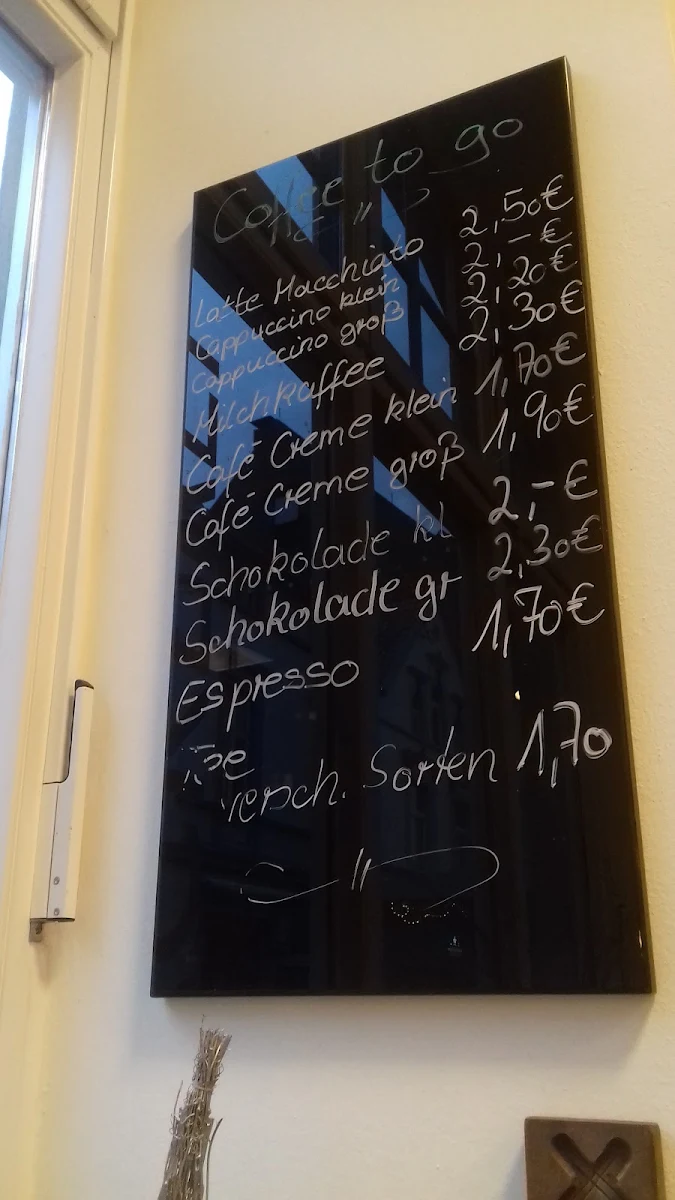 Coffee to go
Latte Macchiato 2,50€
Cappuccino klein 2,-€
Cappuccino groß 2,20€
Milchkaffee 2,30€
Café Creme klein 1,70€
Café Creme groß 1,90€
Schokolade kl 2,-€
Schokolade gr 2,30€
Espresso 1,70€
versch. Sorten 1,70